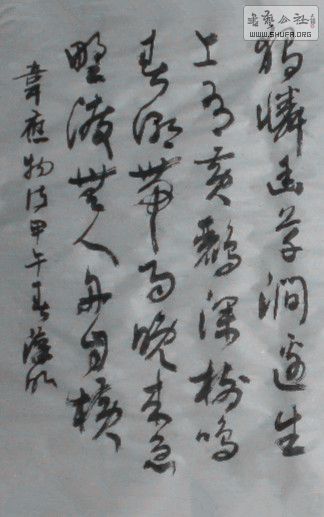 书艺公社
WWW.SHUFA.ORG
獨憐幽草澗邊生
上有黃鸝深樹鳴
春潮帶雨晚來急
野渡無人舟自橫
韋應物詩甲午春